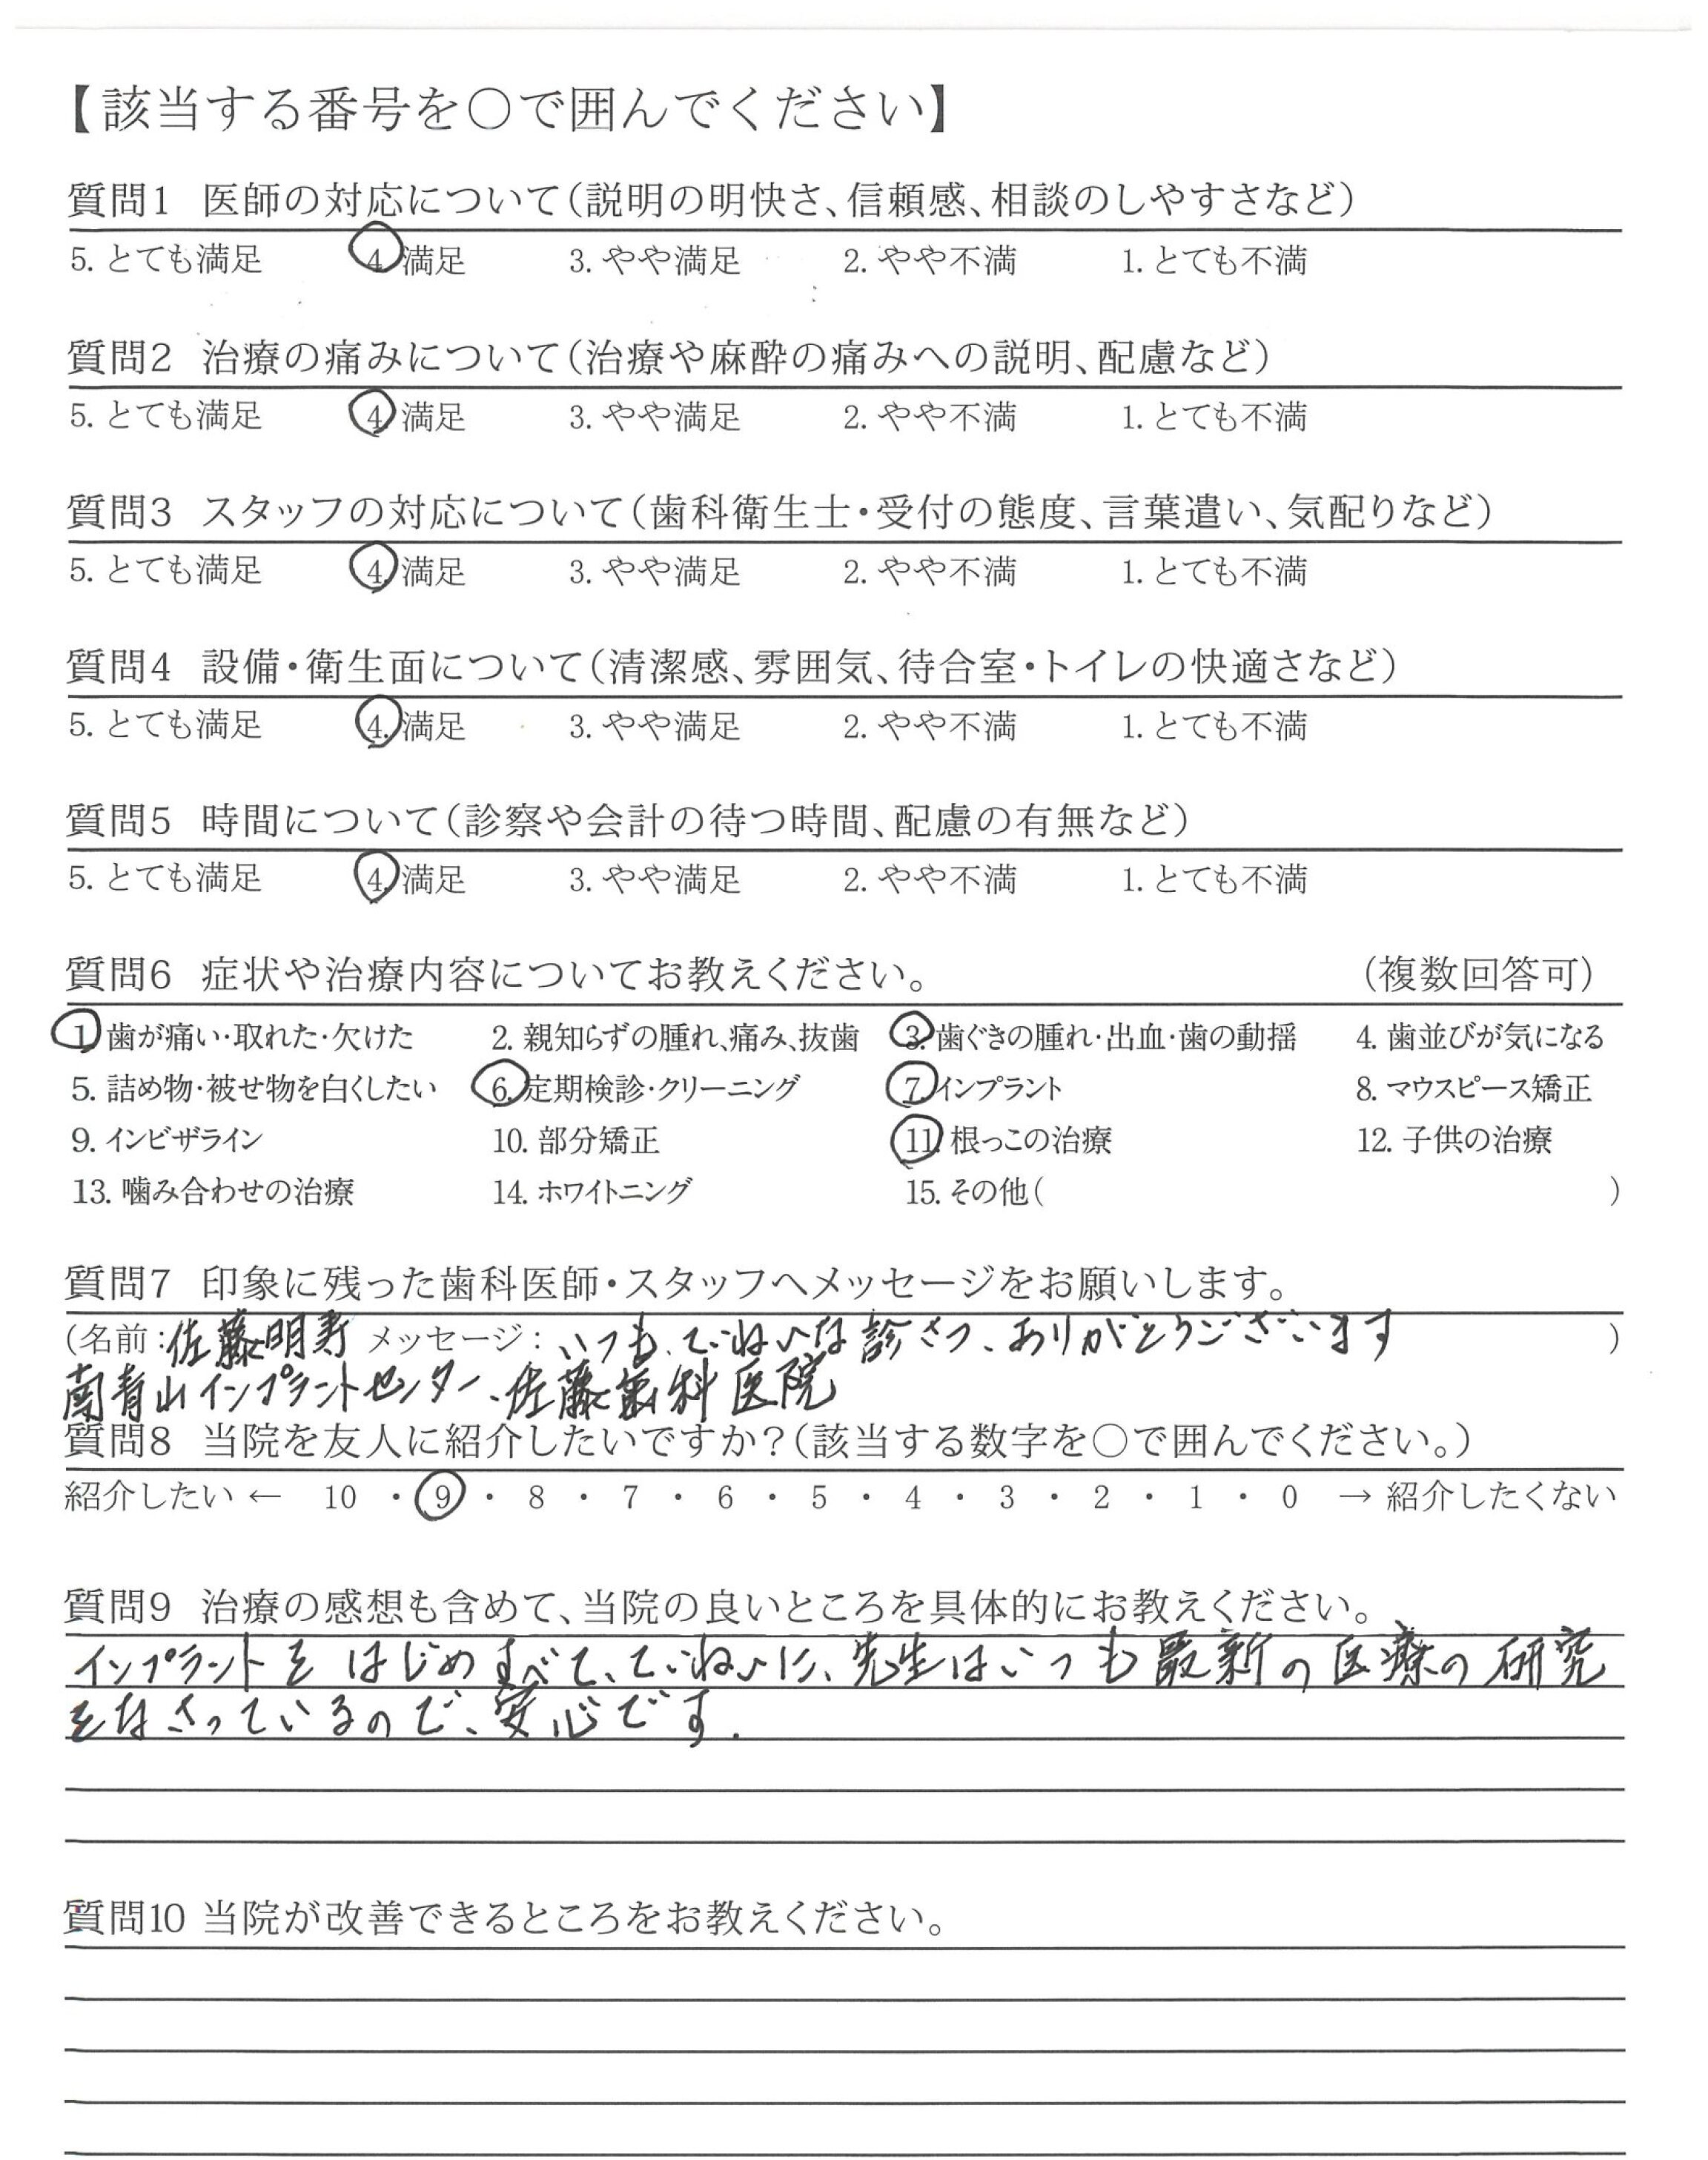 【該当する番号を〇で囲んでください】
質問1 医師の対応について（説明の明快さ、信頼感、相談のしやすさなど）
5. とても満足 4. 満足 3. やや満足 2. やや不満 1. とても不満
質問2 治療の痛みについて（治療や麻酔の痛みへの説明、配慮など）
5. とても満足 4. 満足 3. やや満足 2. やや不満 1. とても不満
質問3 スタッフの対応について（歯科衛生士・受付の態度、言葉遣い、気配りなど）
5. とても満足 4. 満足 3. やや満足 2. やや不満 1. とても不満
質問4 設備・衛生面について（清潔感、雰囲気、待合室・トイレの快適さなど）
5. とても満足 4. 満足 3. やや満足 2. やや不満 1. とても不満
質問5 時間について（診察や会計の待つ時間、配慮の有無など）
5. とても満足 4. 満足 3. やや満足 2. やや不満 1. とても不満
質問6 症状や治療内容についてお教えください。 （複数回答可）
1. 歯が痛い・取れた・欠けた 2. 親知らずの腫れ、痛み、抜歯 3. 歯ぐきの腫れ・出血・歯の動揺 4. 歯並びが気になる
5. 詰め物・被せ物を白くしたい 6. 定期検診・クリーニング 7. インプラント 8. マウスピース矯正
9. インビザライン 10. 部分矯正 11. 根っこの治療 12. 子供の治療
13. 噛み合わせの治療 14. ホワイトニング 15. その他（ ）
質問7 印象に残った歯科医師・スタッフへメッセージをお願いします。
（名前：佐藤明寿 メッセージ：いつも、ていねいな診さつ、ありがとうございます ）
南青山インプラントセンター、佐藤歯科医院
質問8 当院を友人に紹介したいですか？（該当する数字を〇で囲んでください。）
紹介したい ← 10 ・ 9 ・ 8 ・ 7 ・ 6 ・ 5 ・ 4 ・ 3 ・ 2 ・ 1 ・ 0 → 紹介したくない
質問9 治療の感想も含めて、当院の良いところを具体的にお教えください。
インプラントをはじめすべて、ていねいに、先生はいつも最新の医療の研究
をなさっているので、安心です.
質問10 当院が改善できるところをお教えください。